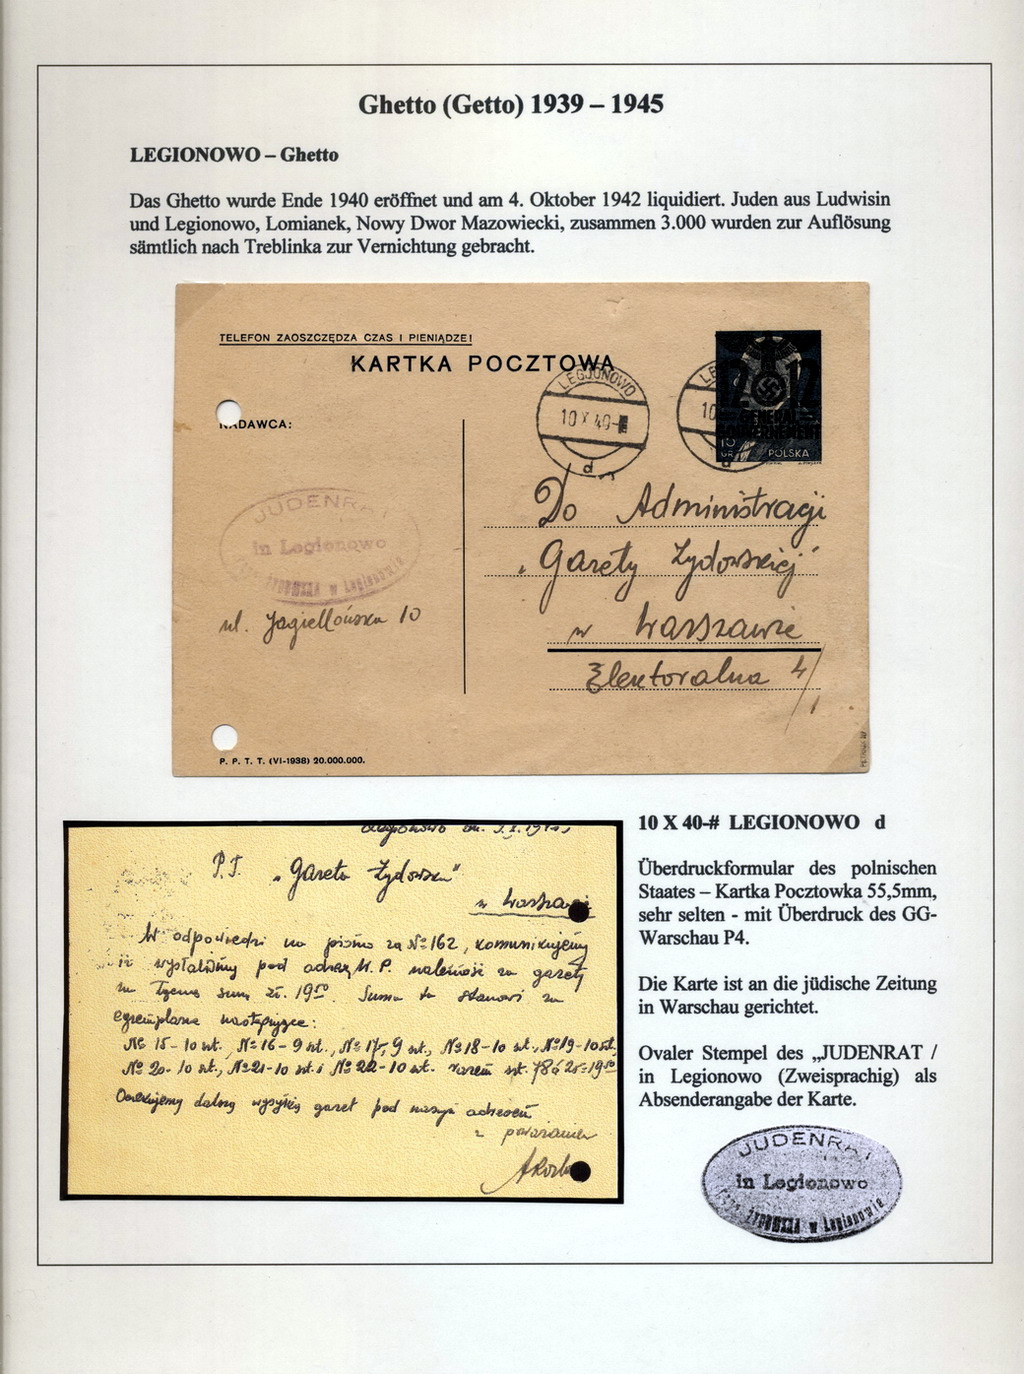 Ghetto (Getto) 1939 – 1945
LEGIONOWO – Ghetto
Das Ghetto wurde Ende 1940 eröffnet und am 4. Oktober 1942 liquidiert. Juden aus Ludwisin
und Legionowo, Lomianek, Nowy Dwor Mazowiecki, zusammen 3.000 wurden zur Auflösung
sämtlich nach Treblinka zur Vernichtung gebracht.
TELEFON ZAOSZCZĘDZA CZAS I PIENIĄDZE!
KARTKA POCZTOWA
NADAWCA:
LEGJONOWO
10 X 40
d
12 12
GENERAL
GOUVERNEMENT
10
GR.
POLSKA
JUDENRAT
in Legionowo
ŻYDOWSKA w Legionowie
ul. Jagiellońska 10
Do Administracji
"Gazety Żydowskiej"
w Warszawie
Elektoralna 4/
P. P. T. T. (VI-1938) 20.000.000.
P.T. "Gazeta Żydowska"
w Warszawie
W odpowiedzi na pismo za № 162, komunikujemy
iż wysłaliśmy pod adres W. P. należność za gazety
na łączną sumę zł. 19⁵⁰. Suma ta stanowi za
egzemplarze następujące:
№ 15 - 10 szt., № 16 - 9 szt., № 17, 9 szt., № 18 - 10 szt., № 19 - 10 szt.
№ 20 - 10 szt., № 21 - 10 szt. i № 22 - 10 szt. razem szt. 78 à 25 = 19⁵⁰
Oczekujemy dalszą wysyłkę gazet pod naszym adresem
z poważaniem
10 X 40-# LEGIONOWO d
Überdruckformular des polnischen
Staates – Kartka Pocztowka 55,5mm,
sehr selten - mit Überdruck des GG-
Warschau P4.
Die Karte ist an die jüdische Zeitung
in Warschau gerichtet.
Ovaler Stempel des „JUDENRAT /
in Legionowo (Zweisprachig) als
Absenderangabe der Karte.
JUDENRAT
in Legionowo
ŻYDOWSKA w Legionowie